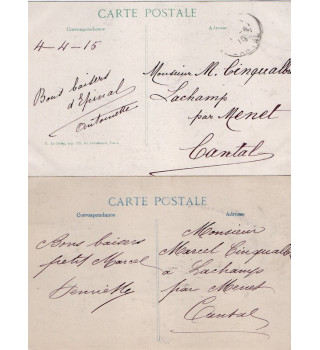 CARTE POSTALE
Correspondance
Adresse
4-4-15
Bons baisers
d'Epinal
Antoinette
Monsieur M. Cinqualbre
Lachamp
par Menet
Cantal
CARTE POSTALE
Correspondance
Adresse
Bons baisers
petit Marcel
Henriette
Monsieur
Marcel Cinqualbre
à Lachamp
par Menet
Cantal